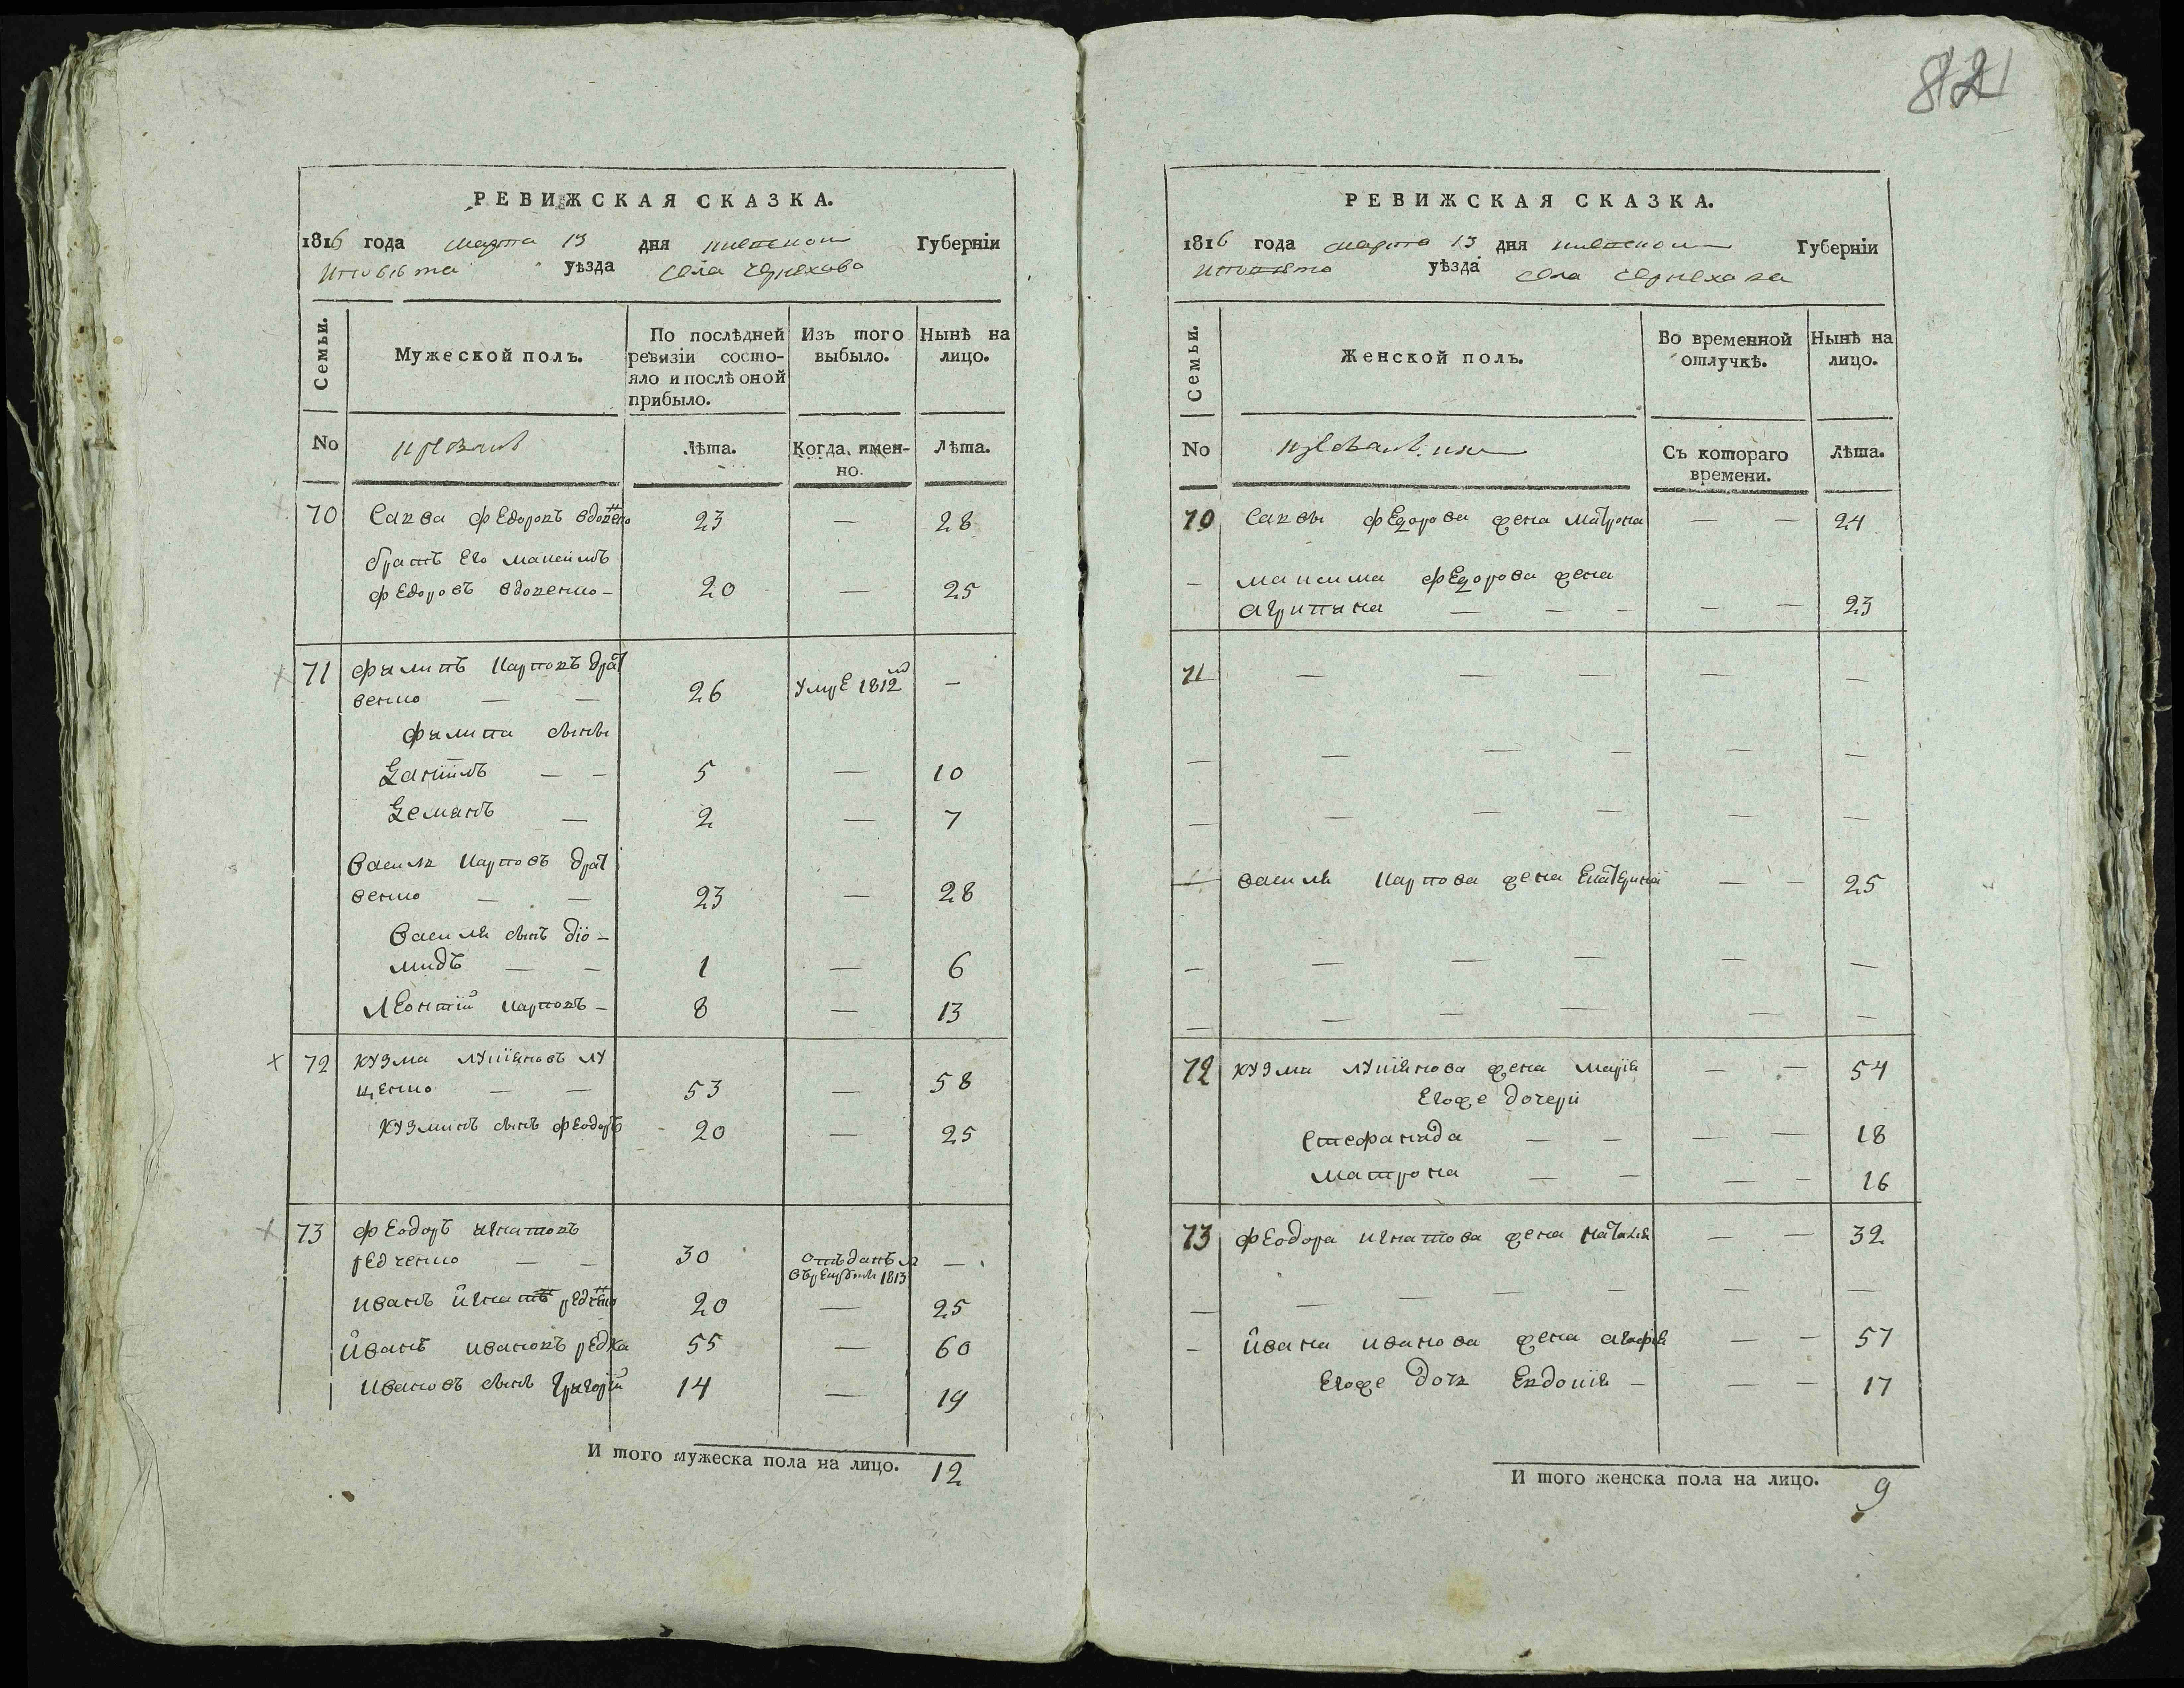 821
РЕВИЖСКАЯ СКАЗКА.
1816 года марта 13 дня киевской Губерніи
уѣзда села чернехова
Семьи.
Мужеской полъ.
По послѣдней ревизіи состо-
яло и послѣ оной
прибыло.
Изъ того
выбыло.
Нынѣ на
лицо.
No
Лѣта.
Когда имен-
но.
Лѣта.
70 Савва Федоровъ вдовенко 23 — 28
братъ его максимъ
федоровъ вдовенко — 20 — 25
71 филипъ карповъ драт
венко — — 26 умре 1812 —
филипа сыны
Данїилъ — — 5 — 10
Демянъ — 2 — 7
василь карповъ драт
венко — — 23 — 28
василя сынъ дїо —
мидъ — — 1 — 6
леонтїй карповъ — 8 — 13
72 кузма лукїяновъ лу
щенко — — 53 — 58
кузминъ сынъ феодоръ 20 — 25
73 феодоръ игнатовъ
редченко — — 30 отъданъ
врекруты 1813 —
иванъ игнатъ редченко 20 — 25
иванъ ивановъ редка 55 — 60
ивановъ сынъ григорїй 14 — 19
И того мужеска пола на лицо. 12
РЕВИЖСКАЯ СКАЗКА.
1816 года марта 13 дня киевской Губерніи
уѣзда села чернехова
Семьи.
Женской полъ.
Во временной
отлучкѣ.
Нынѣ на
лицо.
No
Съ котораго
времени.
Лѣта.
70 Саввы федорова жена матрона — — 24
— максима федорова жена
агрипина — — — — — 23
71 — — — — —
— — — — — —
— — — — — —
— василя карпова жена екатерина — — 25
— — — — — —
— — — — — —
72 кузма лукїянова жена марїя — — 54
егоже дочери
стефанида — — — — 18
матрона — — — — 16
73 феодора игнатова жена наталия — — 32
— — — — — — —
— ивана иванова жена агафїя — — 57
егоже дочь евдокїя — — — 17
И того женска пола на лицо. 9